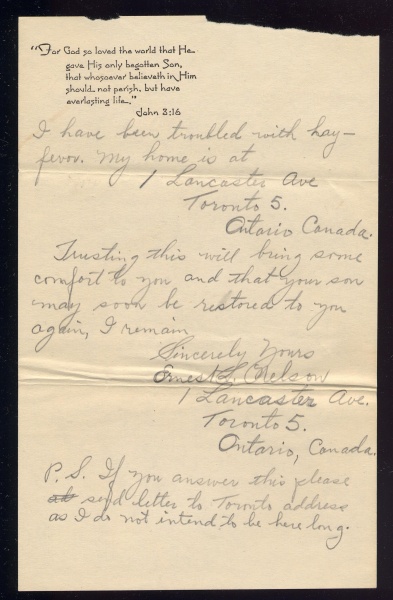 "For God so loved the world that He
gave His only begotten Son,
that whosoever believeth in Him
should not perish, but have
everlasting life."
John 3:16
I have been troubled with hay-
fevor. My home is at
1 Lancaster Ave
Toronto 5.
Ontario Canada.
Trusting this will bring some
comfort to you and that your son
may soon be restored to you
again, I remain
Sincerely Yours
Ernest L. Nelson
1 Lancaster Ave.
Toronto 5.
Ontario, Canada.
P.S. If you answer this please
send letter to Toronto address
as I do not intend to be here long.